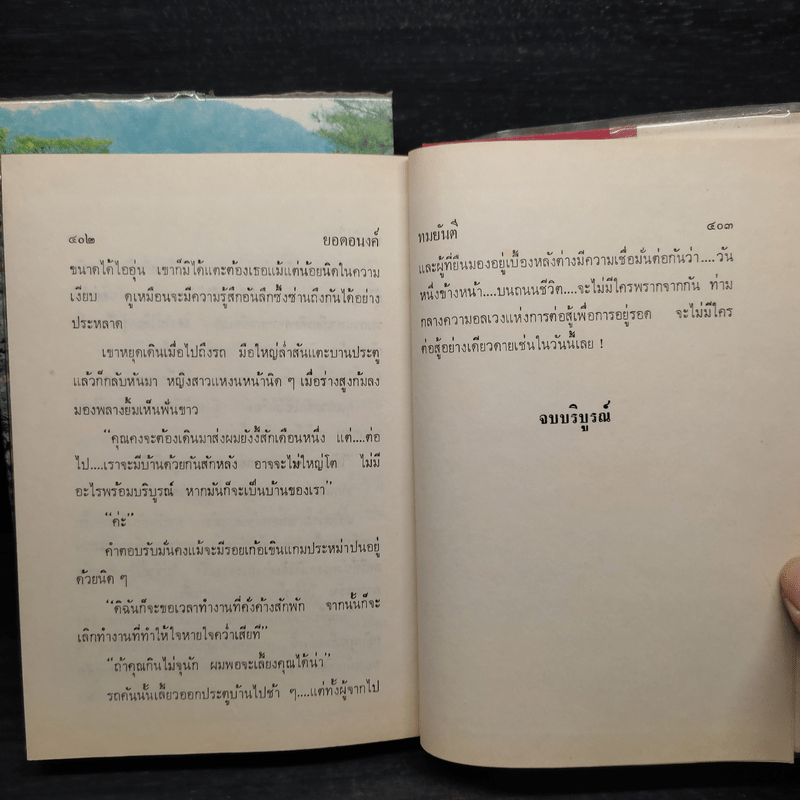 ๔๐๒ ยอดอนงค์
ขนาดได้ไออุ่น เขาก็มิได้แตะต้องเธอแม้แต่น้อยนิดในความ
เงียบ ดูเหมือนจะมีความรู้สึกอันลึกซึ้งซ่านถึงกันได้อย่าง
ประหลาด
เขาหยุดเดินเมื่อไปถึงรถ มือใหญ่ล่ำสันแตะบานประตู
แล้วก็กลับหันมา หญิงสาวแหงนหน้านิด ๆ เมื่อร่างสูงก้มลง
มองพลางยิ้มเห็นฟันขาว
“คุณคงจะต้องเดินมาส่งผมยังงี้สักเดือนหนึ่ง แต่....ต่อ
ไป....เราจะมีบ้านด้วยกันสักหลัง อาจจะไม่ใหญ่โต ไม่มี
อะไรพร้อมบริบูรณ์ หากมันก็จะเป็นบ้านของเรา”
“ค่ะ”
คำตอบรับมั่นคงแม้จะมีรอยเก้อเขินแกมประหม่าปนอยู่
ด้วยนิด ๆ
“ดิฉันก็จะขอเวลาทำงานที่คั่งค้างสักพัก จากนั้นก็จะ
เลิกทำงานที่ทำให้ใจหายใจคว่ำเสียที”
“ถ้าคุณกินไม่จุนัก ผมพอจะเลี้ยงคุณได้น่า”
รถคันนั้นเลี้ยวออกประตูบ้านไปช้า ๆ....แต่ทั้งผู้จากไป
ทมยันตี ๔๐๓
และผู้ที่ยืนมองอยู่เบื้องหลังต่างมีความเชื่อมั่นต่อกันว่า....วัน
หนึ่งข้างหน้า....บนถนนชีวิต....จะไม่มีใครพรากจากกัน ท่าม
กลางความอลเวงแห่งการต่อสู้เพื่อการอยู่รอด จะไม่มีใคร
ต่อสู้อย่างเดียวดายเช่นในวันนี้เลย !
จบบริบูรณ์